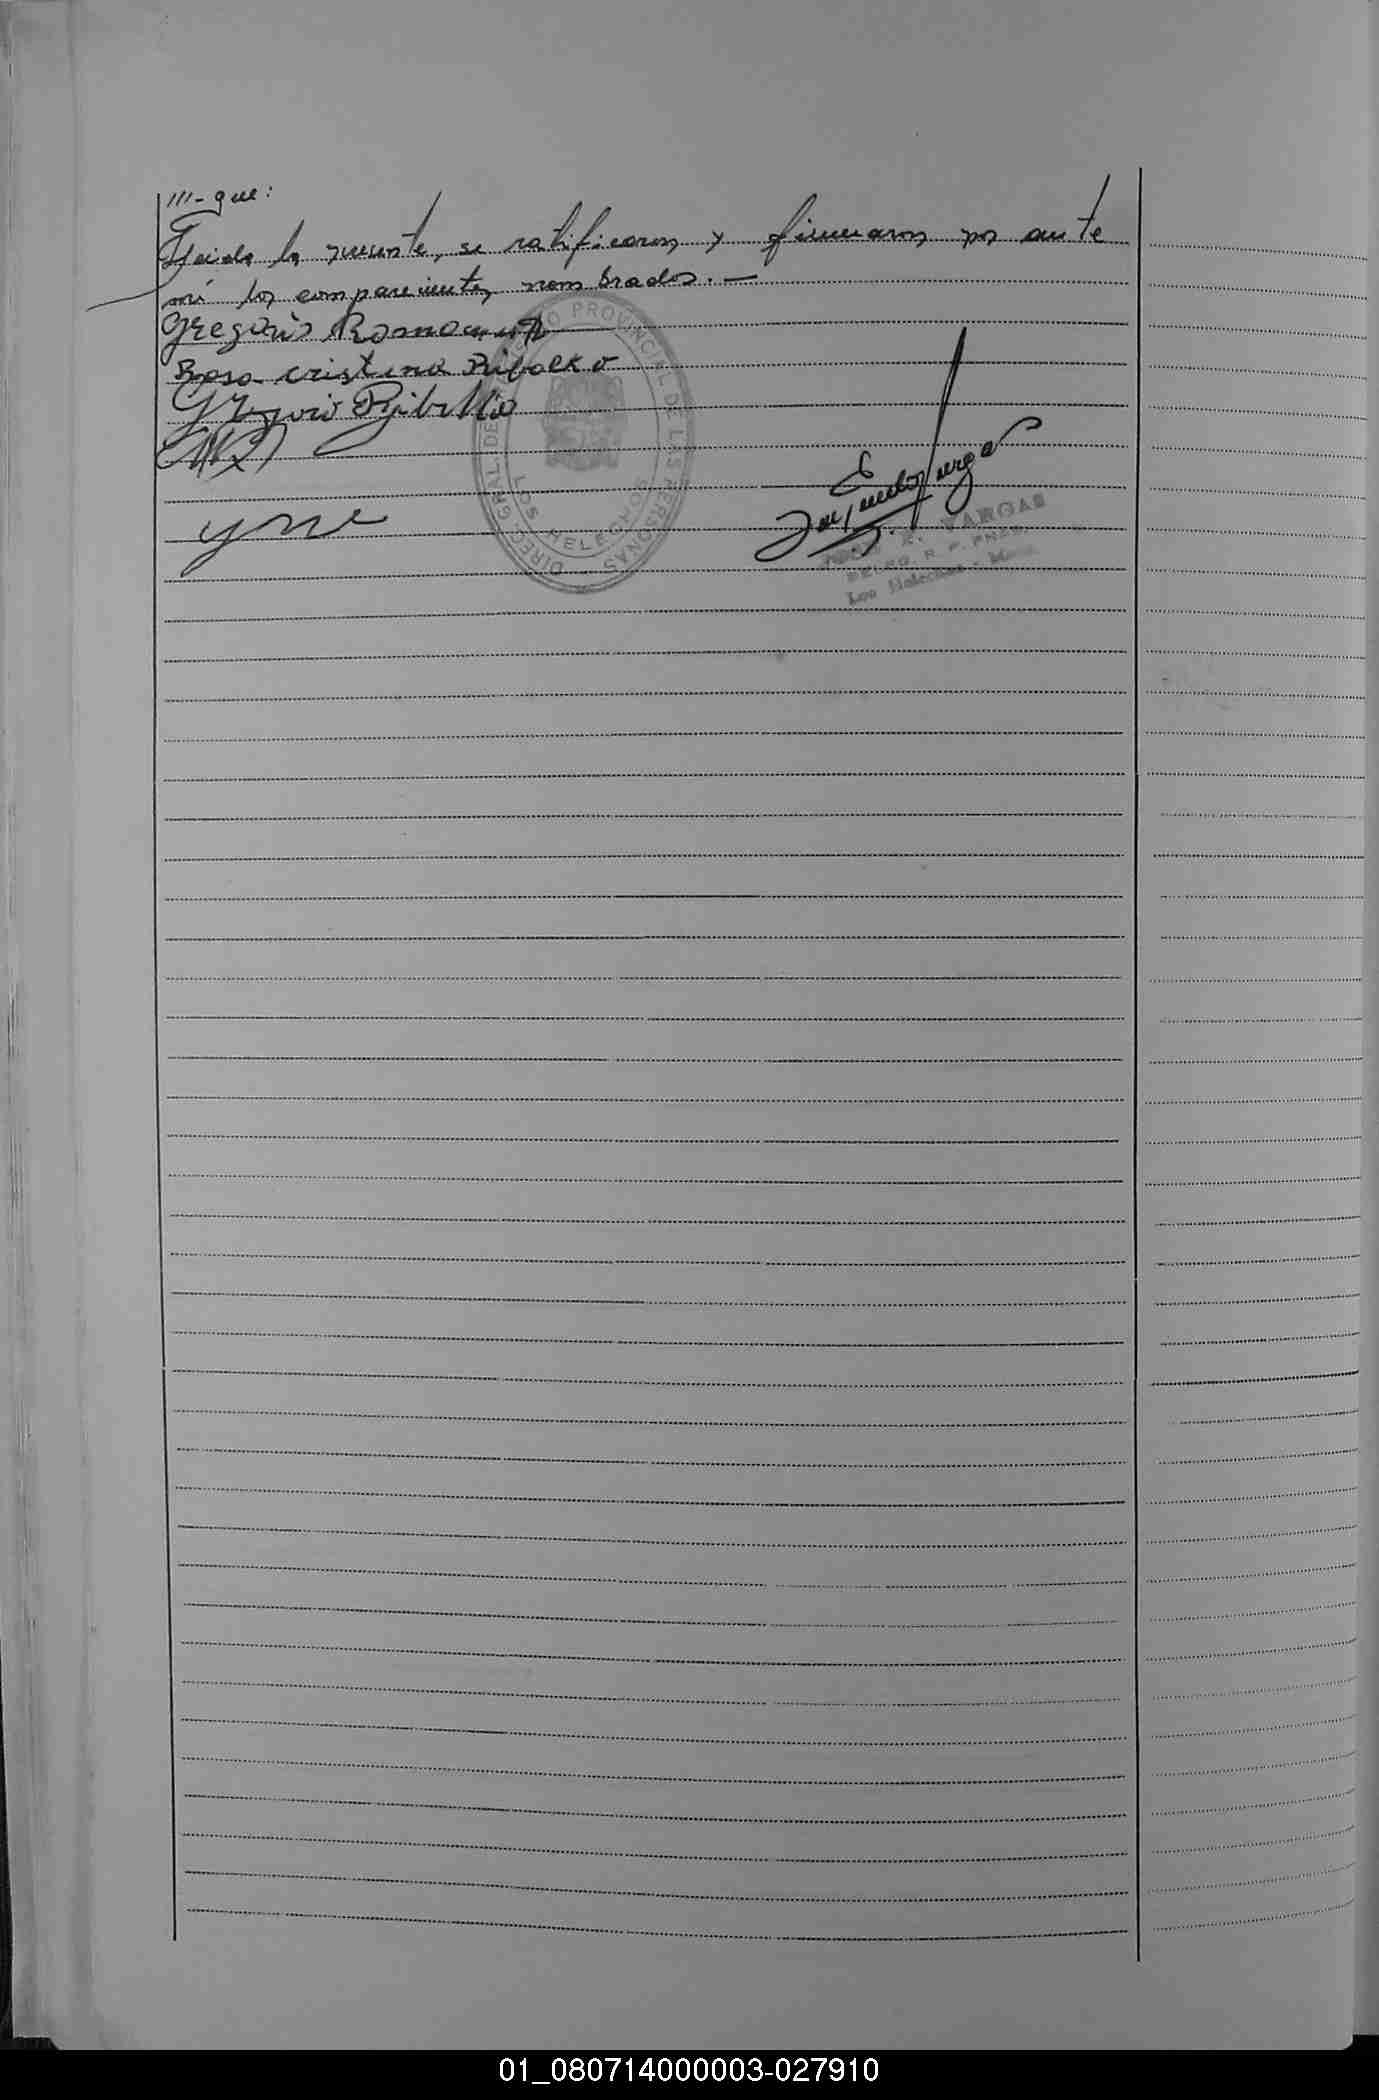 ///- que:
Leida la presente, se ratificaron y firmaron por ante
mí los comparecientes nombrados. —
Gregorio
Rosa cristina Ribalko
Gregorio
DIREC. GRAL. DEL REGISTRO PROVINCIAL DE LAS PERSONAS
LOS HELECHOS
E. VARGAS
DELEG. R. P. PNAS.
Los Helechos - Mnes.
01_080714000003-027910